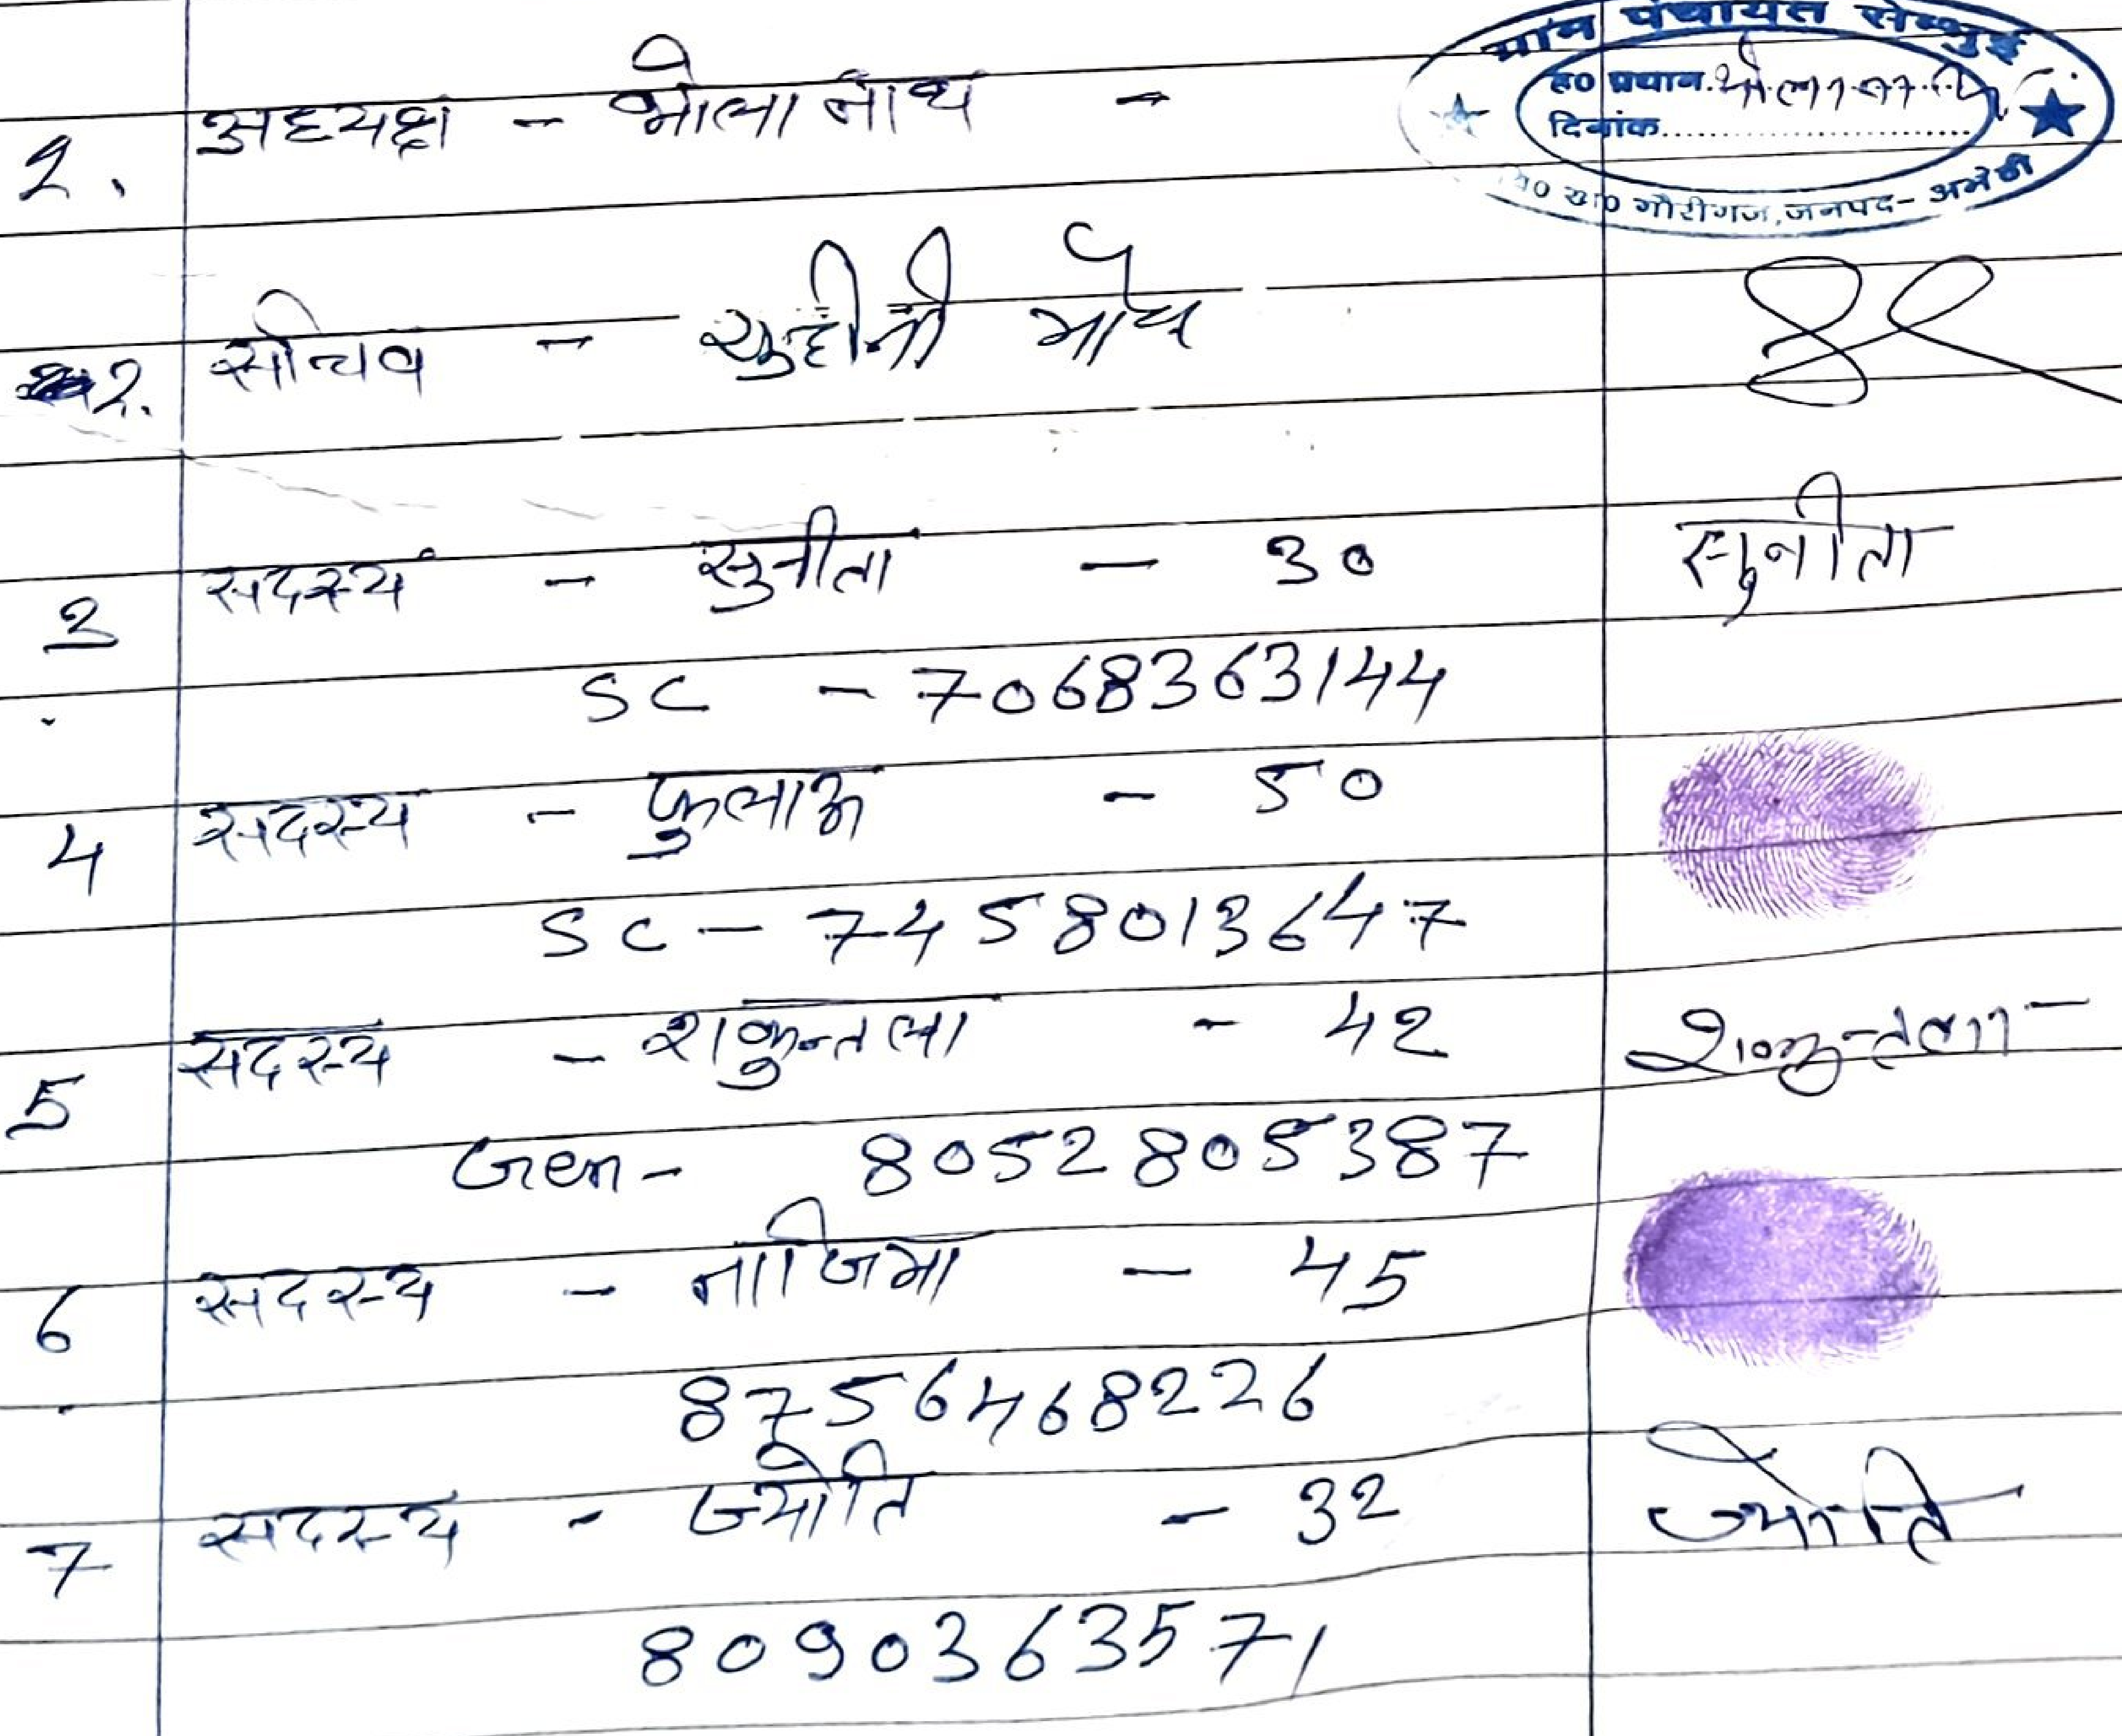 ग्राम पंचायत सेम्भुई
ह० प्रधान. भोलानाथ
दिनांक..............................
वि० ख० गौरीगंज, जनपद- अमेठी
१. अध्यक्ष - भोला नाथ -
२. सचिव -
3 सदस्य - सुनीता - 30 सुनीता
SC - 7068363144
4 सदस्य - फुलाऊ - 50
SC - 7458013647
5 सदस्य - शकुन्तला - 42 शकुन्तला
Gen - 8052805387
6 सदस्य - नाजिमा - 45
8756468226
7 सदस्य - ज्योति - 32 ज्योति
8090363571